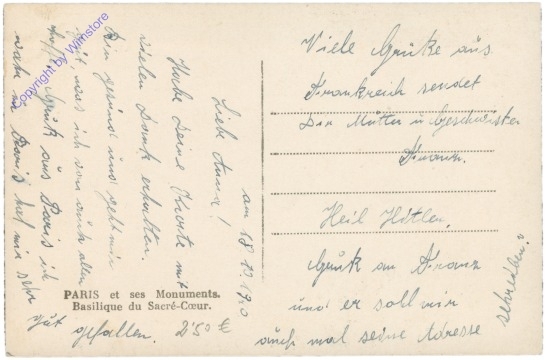 am 18.10.1940
Liebe Anna!
Habe deine Karte mit
vielen Dank erhalten.
Bin gesund und geht mir
gut, was ich von euch allen
hoffe. Gruß aus Paris ich
war in Paris hat mir sehr
gut gefallen.
2'50 €
PARIS et ses Monuments.
Basilique du Sacré-Cœur.
Viele Grüße aus
Frankreich sendet
Dir Mutter u Geschwister
Franz.
Heil Hitler.
Gruß an Franz
und er soll mir
auch mal seine Adresse
schreiben.
Copyright by Wirnstore